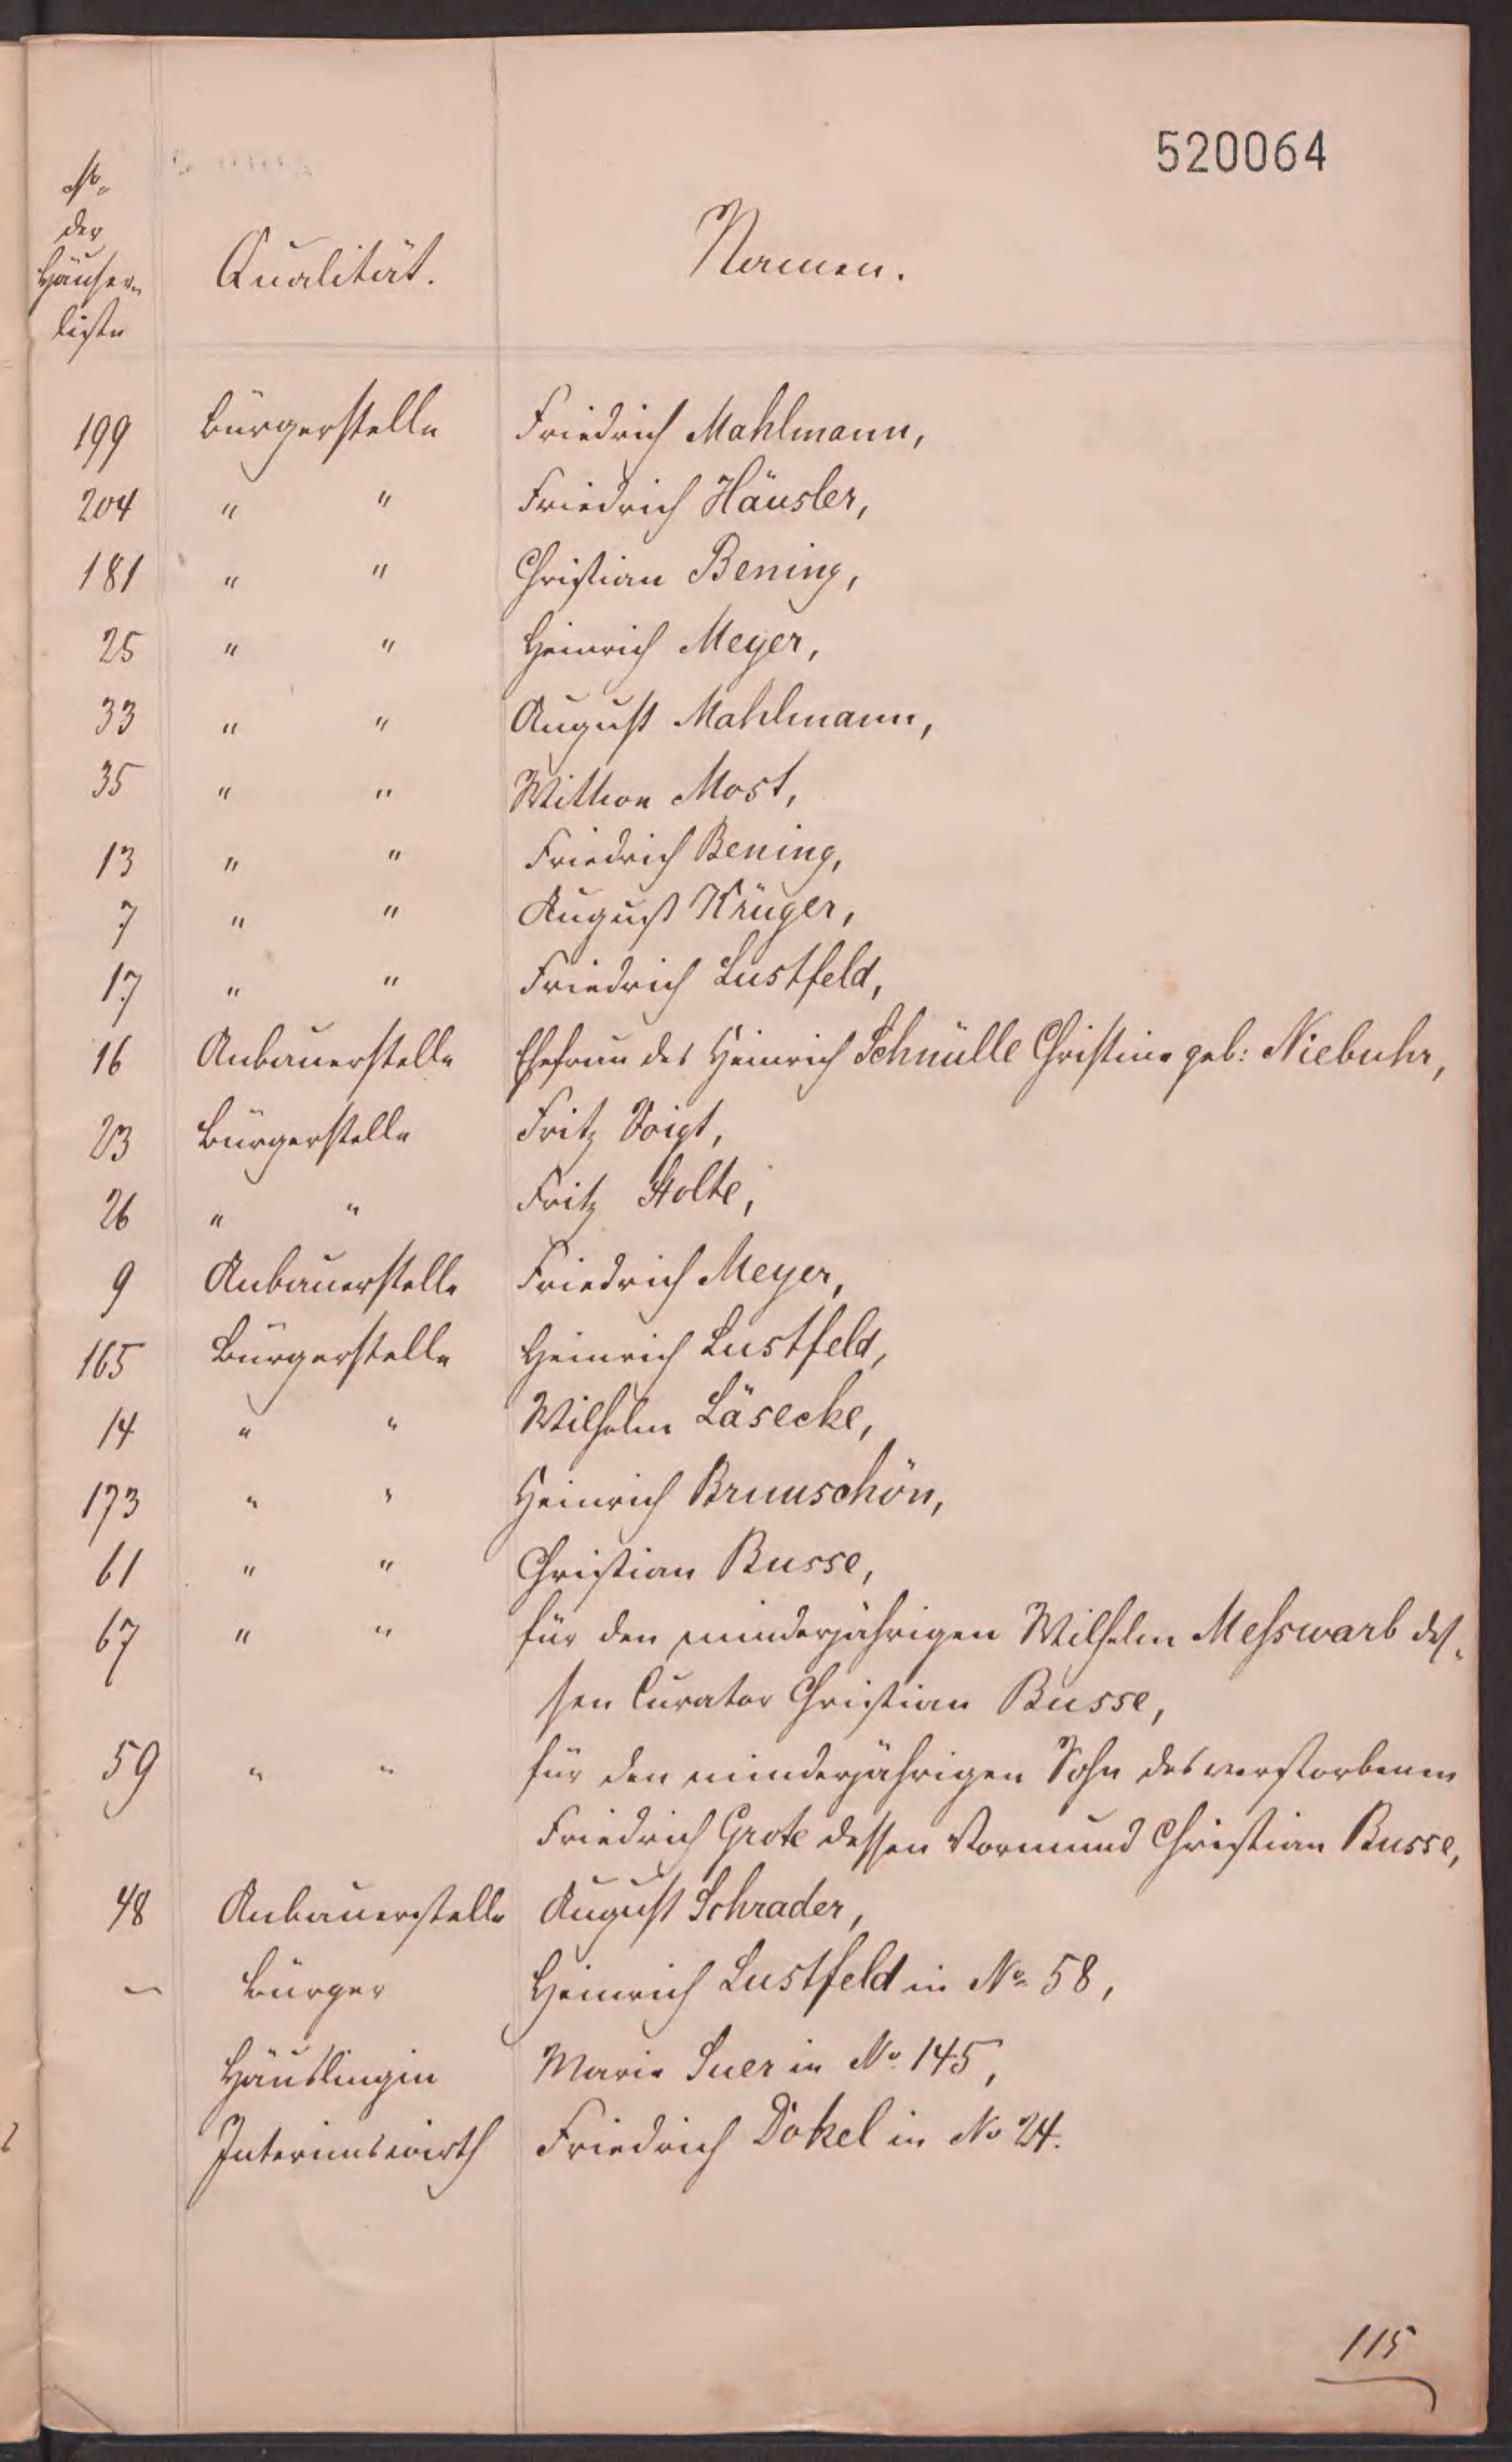 520064
No.
der
Häuser-
liste
Qualität.
Namen.
199 Bürgerstelle Friedrich Mahlmann,
204 " " Friedrich Häusler,
181 " " Christian Bening,
25 " " Heinrich Meyer,
33 " " August Mahlmann,
35 " " Wittwe Most,
13 " " Friedrich Bening,
7 " " August Krüger,
17 " " Friedrich Lustfeld,
16 Anbauerstelle Ehefrau des Heinrich Schnülle Christine geb: Niebuhr,
23 Bürgerstelle Fritz Voigt,
26 " " Fritz Stolte,
9 Anbauerstelle Friedrich Meyer,
165 Bürgerstelle Heinrich Lustfeld,
14 " " Wilhelm Läsecke,
173 " " Heinrich Brunschön,
61 " " Christian Busse,
67 " " für den minderjährigen Wilhelm Messwarb des-
sen Curator Christian Busse,
59 " " für den minderjährigen Sohn des verstorbenen
Friedrich Grote dessen Vormund Christian Busse,
48 Anbauerstelle August Schrader,
– Bürger Heinrich Lustfeld in No 58,
Häuslingin Marie Suer in No 145,
Interimswirth Friedrich Dökel in No 24.
115